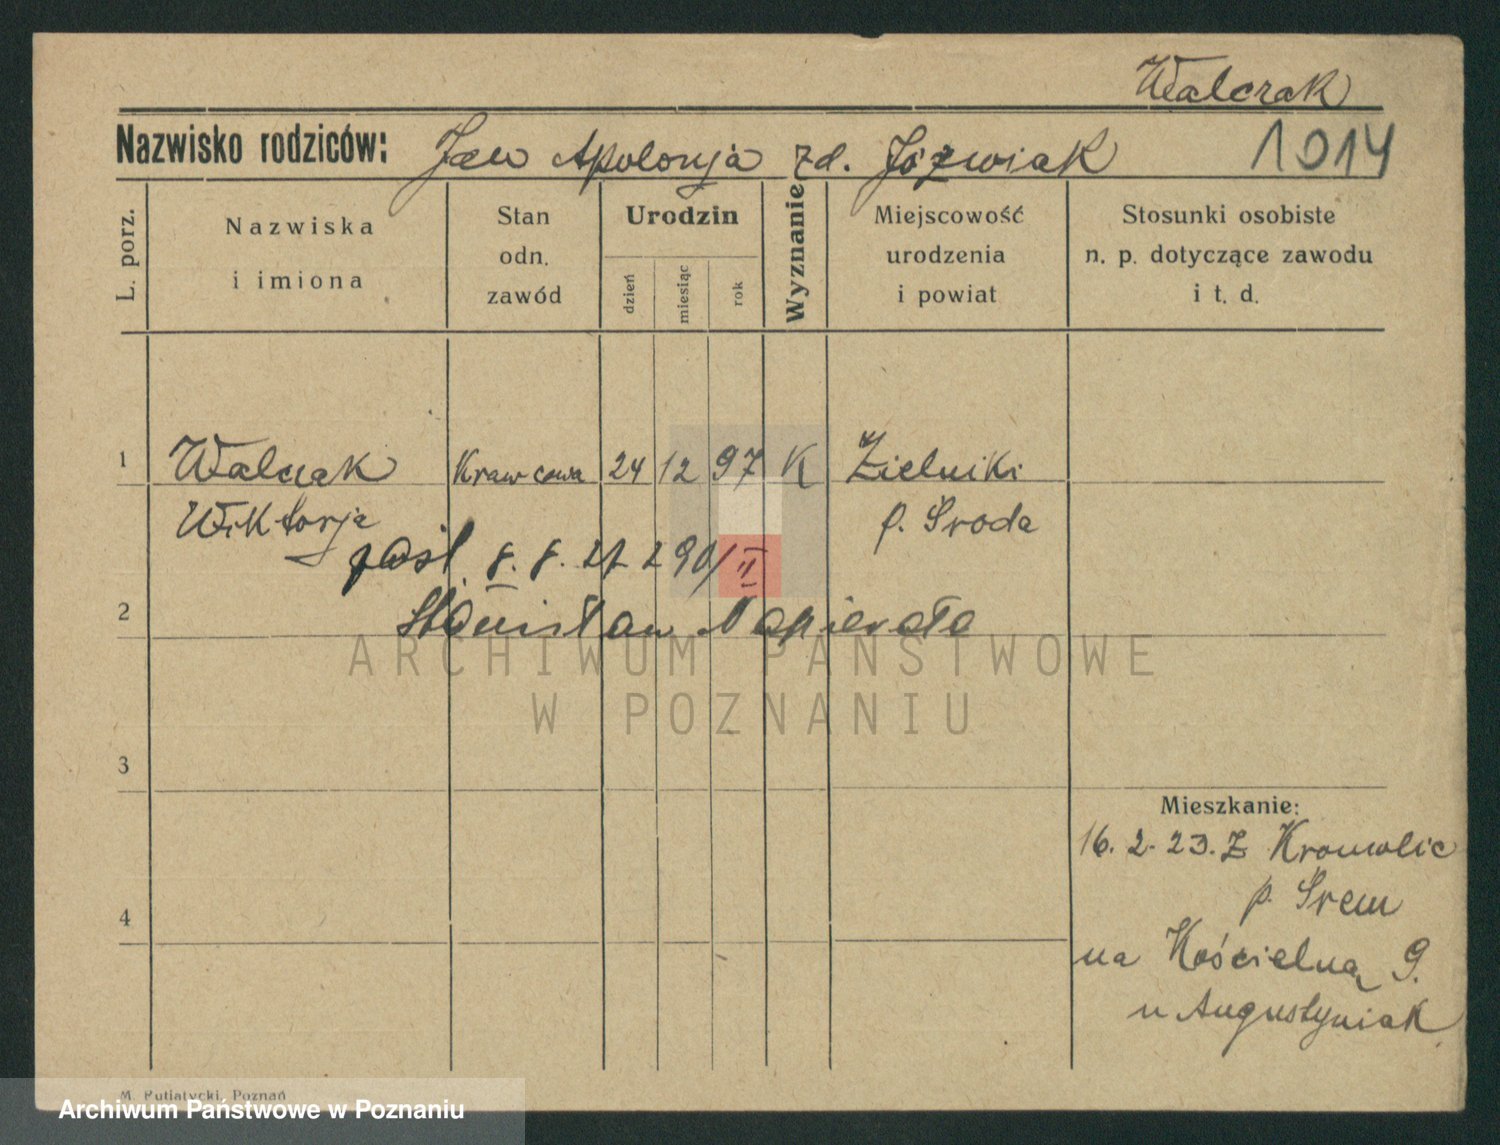 Walczak
Nazwisko rodziców: Jan Apolonja zd. Józwiak 1014
L. porz.
Nazwiska
i imiona
Stan
odn.
zawód
Urodzin
dzień
miesiąc
rok
Wyznanie
Miejscowość
urodzenia
i powiat
Stosunki osobiste
n. p. dotyczące zawodu
i t. d.
1 Walczak Krawcowa 24 12 97 K Zielniki
Wiktorja p. Środa
pośl. 8. 8. 27 290/II
2 Stanisław Napierała
ARCHIWUM PAŃSTWOWE
W POZNANIU
3
Mieszkanie:
16. 2. 23. Z Kromolic
p. Śrem
4
na Kościelną 9.
u Augustyniak
M. Putiatycki, Poznań
Archiwum Państwowe w Poznaniu